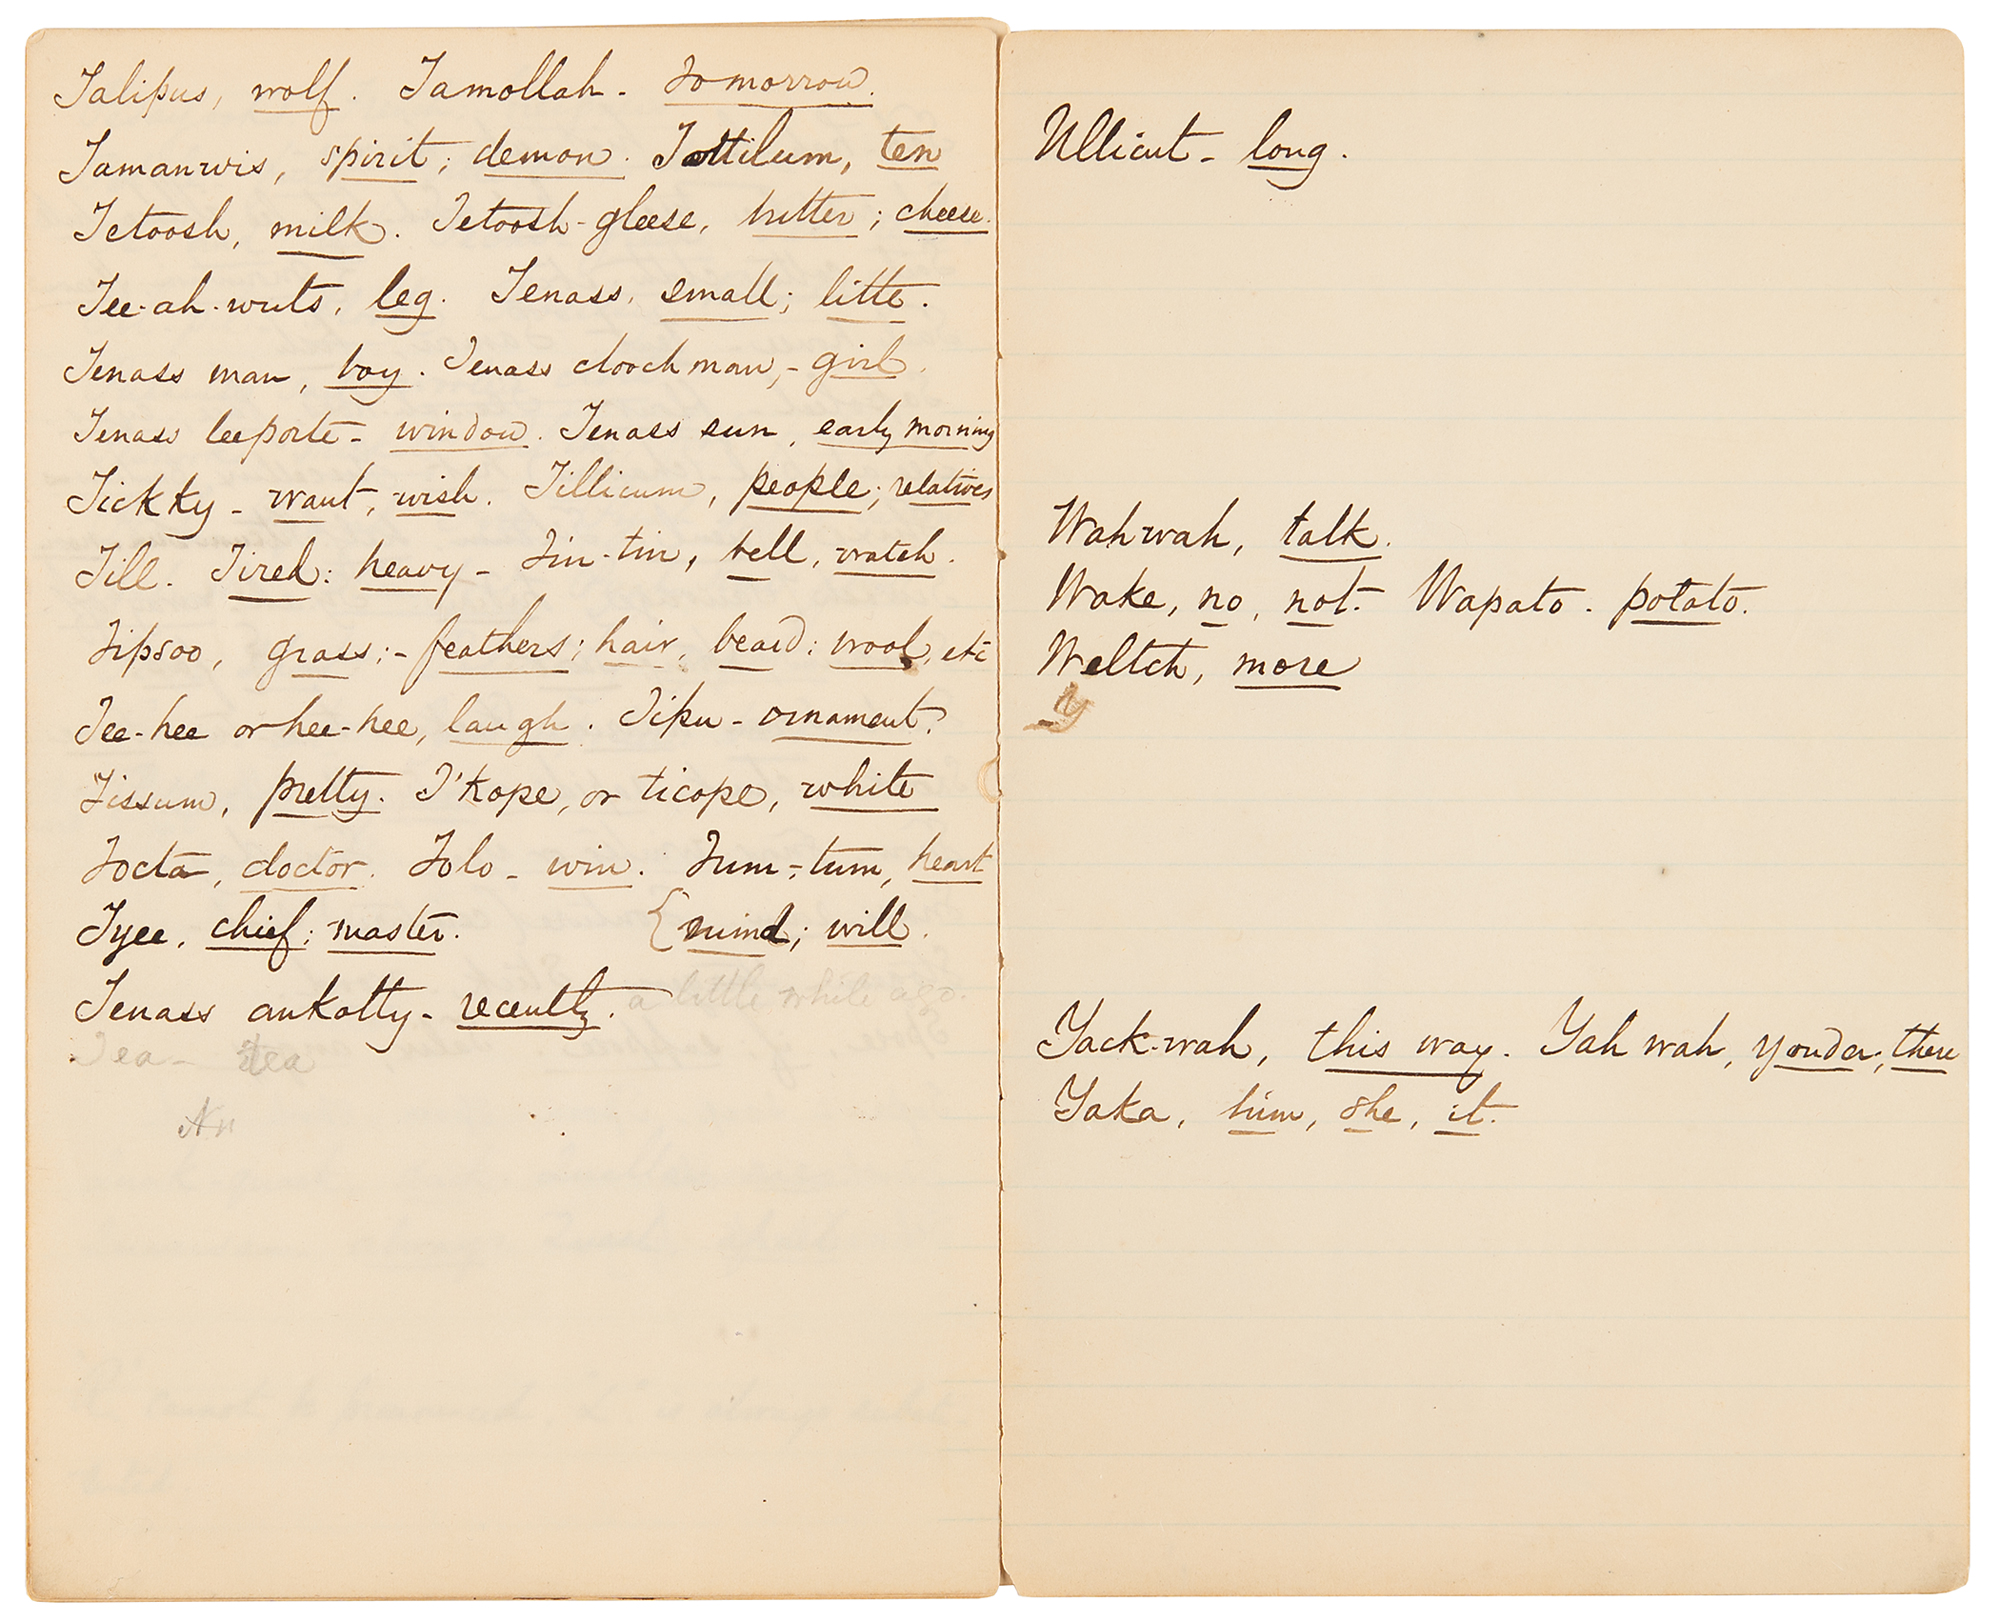 Talipus, wolf. Tamollah - tomorrow.
Tamanwis, spirit; demon. Tottilum, ten
Tetoosh, milk. Tetoosh-gleese, butter; cheese.
Tee-ah-wuts, leg. Tenass, small; litte.
Tenass man, boy. Tenass cloochman, - girl.
Tenass leeporte - window. Tenass sun, early morning
Tickky - want, wish. Tillicum, people; relatives
Till. Tired: heavy - Tin-tin, bell, watch.
Tipsoo, grass; - feathers; hair, beard; wool, etc
Tee-hee or hee-hee, laugh. Tipu - ornament.
Tissum, pretty. T'kope, or ticope, white
Tocta, doctor. Tolo - win. Tum-tum, heart
Tyee, chief; master. {mind; will.
Tenass ankotty - recently. a little while ago.
Tea - tea
Ullicut - long.
Wahwah, talk.
Wake, no, not. Wapato - potato.
Weltch, more
Y
Yack-wah, this way. Yah wah, yonder; there
Yaka, him, she, it.